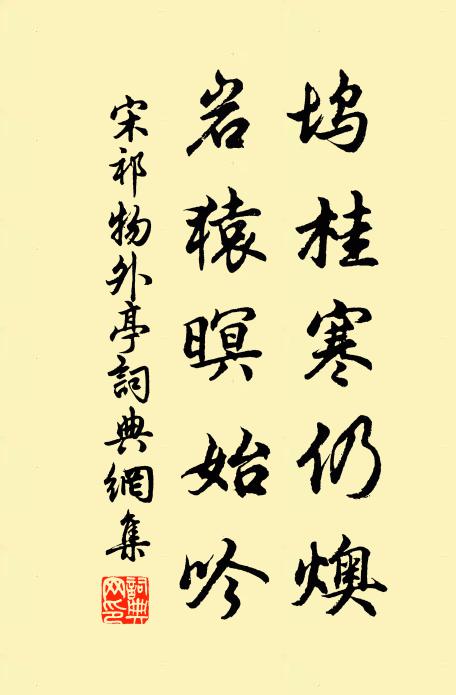 坞桂寒仍燠
岩猿暝始吟
宋祁物外亭詞典網集